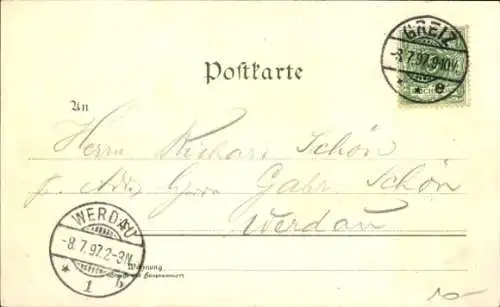 GREIZ
-8.7.97.9-10V.
* * e
Postkarte
An
Herrn Richard Schön
Adr. Herrn Gebr. Schön
Werdau
WERDAU
-8.7.97.2-3N.
* 1 b
Wohnung